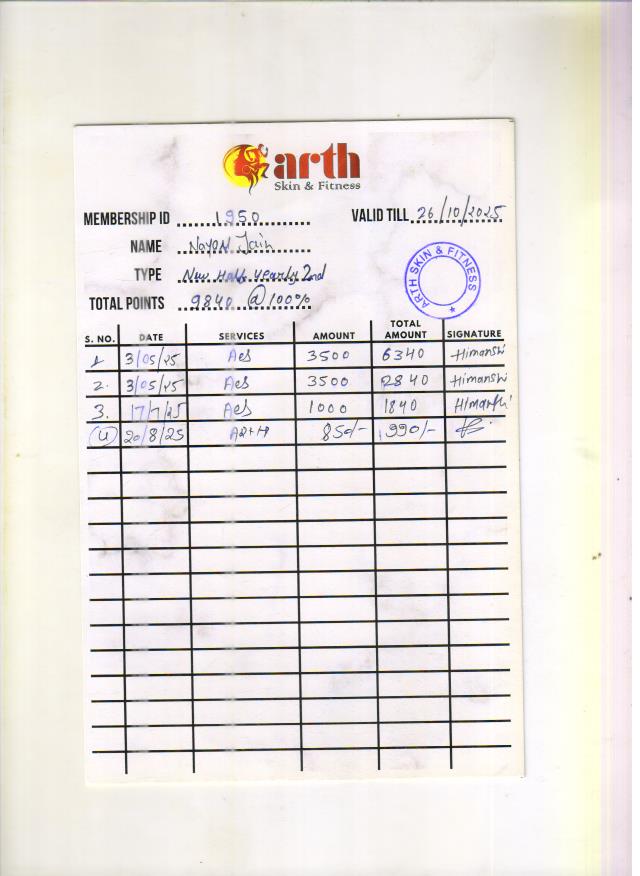 arth
Skin & Fitness
MEMBERSHIP ID 1950 VALID TILL 26/10/2025
NAME Nayan Jain
TYPE New Half yearly 2nd
TOTAL POINTS 9840 @ 100%
ARTH SKIN & FITNESS
S. NO. DATE SERVICES AMOUNT TOTAL AMOUNT SIGNATURE
1 3/05/25 Aes 3500 6340 Himanshi
2. 3/05/25 Aes 3500 2840 Himanshi
3. 17/7/25 Aes 1000 1840 Himanshi
(4) 20/8/25 850/- 990/-